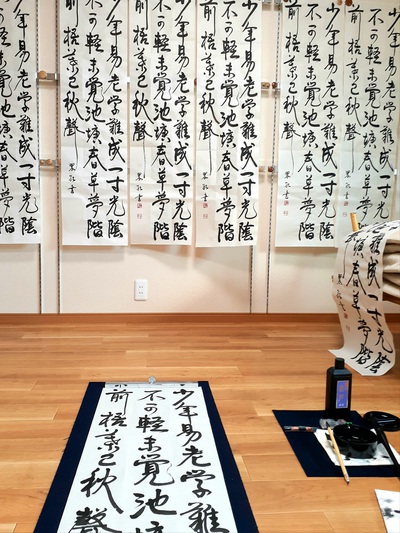 少年易老学難成一寸光陰
不可軽未覺池塘春草夢階
少年易老学難成一寸光陰
不可軽未覺池塘春草夢階
前梧葉已秋聲
少年易老学難成一寸光陰
不可軽未覺池塘春草夢階
前梧葉已秋聲
少年易老学難成一寸光陰
不可軽未覺池塘春草夢階
前梧葉已秋聲
少年易老学難成一寸光陰
不可軽未覺池塘春草夢階
前梧葉已秋聲
少年易老学難成一寸光陰
不可軽未覺池塘春草夢階
前梧葉已秋聲
難成一寸光陰
少年易老学難
不可軽未覺池塘
前梧葉已秋聲